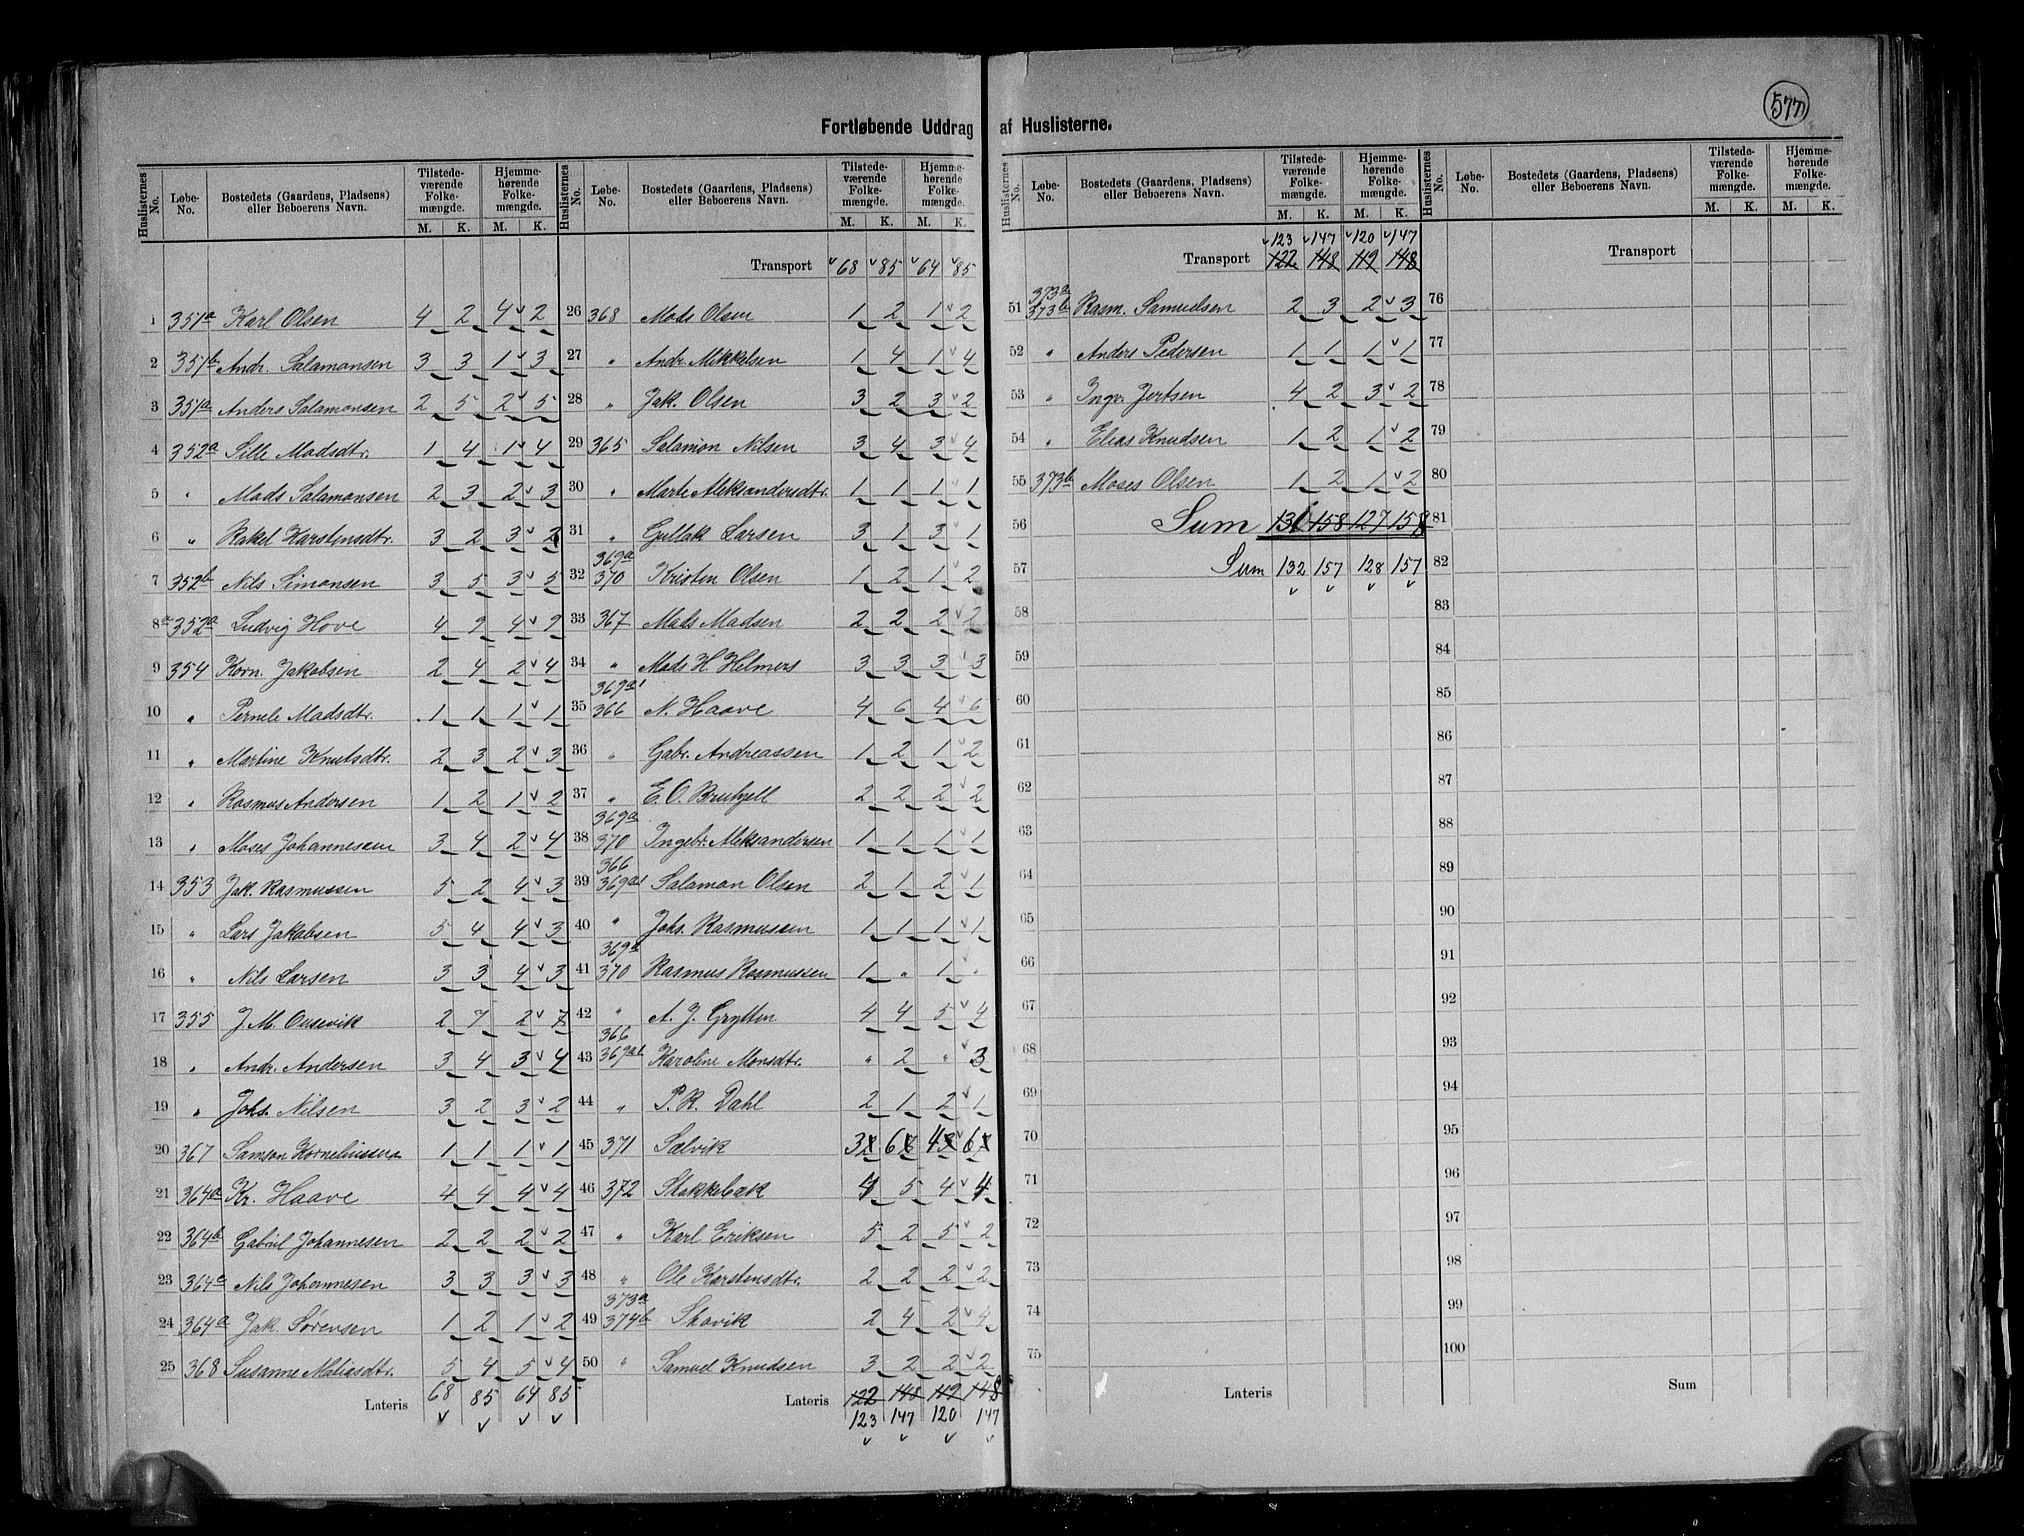 577
Fortløbende Uddrag af Huslisterne.
Huslisternes No. Løbe-No. Bostedets (Gaardens, Pladsens) eller Beboerens Navn. Tilstedeværende Folkemængde. M. K. Hjemmehørende Folkemængde. M. K.
1 351a Karl Olsen 4 2 4 2
2 351b Andr. Salamonsen 3 3 1 3
3 351a Anders Salamonsen 2 5 2 5
4 352a Sille Madsdtr. 1 4 1 4
5 " Mads Salamonsen 2 3 2 3
6 " Rakel Karstensdtr. 3 2 3 2
7 352b Nils Simonsen 3 5 3 5
8a 352a Ludvig Hove 4 9 4 9
9 354 Korn. Jakobsen 2 4 2 4
10 " Pernele Madsdtr. 1 1 1 1
11 " Martine Knutsdtr. 2 3 2 3
12 " Rasmus Andersen 1 2 1 2
13 " Moses Johannessen 3 4 2 4
14 353 Jak. Rasmussen 5 2 4 3
15 " Lars Jakobsen 5 4 4 3
16 " Nils Larsen 3 3 4 3
17 355 J. M. Ousevik 2 7 2 7
18 " Andr. Andersen 3 4 3 4
19 " Johs. Nilsen 3 2 3 2
20 367 Samson Korneliussen 1 1 1 1
21 364a Kr. Haave 4 4 4 4
22 364b Gabriel Johannesen 2 2 2 2
23 364a Nils Johannesen 3 3 3 3
24 364a Jak. Sørensen 1 2 1 2
25 368 Susanne Matiasdtr. 5 4 5 4
Lateris 68 85 64 85
Huslisternes No. Løbe-No. Bostedets (Gaardens, Pladsens) eller Beboerens Navn. Tilstedeværende Folkemængde. M. K. Hjemmehørende Folkemængde. M. K.
Transport 68 85 64 85
26 368 Mads Olsen 1 2 1 2
27 " Andr. Mikkelsen 1 4 1 4
28 " Jak. Olsen 3 2 3 2
29 365 Salamon Nilsen 3 4 3 4
30 " Marte Aleksandersdtr. 1 1 1 1
31 " Gullak Larsen 3 1 3 1
32 369a 370 Kristen Olsen 1 2 1 2
33 367 Mads Madsen 2 2 2 2
34 " Mads H. Helmers 3 3 3 3
35 369a1 366 N. Haave 4 6 4 6
36 " Gabr. Andreassen 1 2 1 2
37 " E. O. Bruhjell 2 2 2 2
38 369a 370 Ingebr. Aleksandersen 1 1 1 1
39 366 369a1 Salamon Olsen 2 1 2 1
40 " Johs. Rasmussen 1 1 1 1
41 369a 370 Rasmus Rasmussen 1 " 1 "
42 " A. J. Grytten 4 4 5 4
43 366 369a1 Karoline Monsdtr. " 2 " 3
44 " P. R. Dahl 2 1 2 1
45 371 Sælvik 3 6 4 6
46 372 Stokkebæk 4 5 4 4
47 " Karl Eriksen 5 2 5 2
48 " Ole Karstensdtr. 2 2 2 2
49 373a 374b Skavik 2 4 2 4
50 " Samuel Knudsen 3 2 2 2
Lateris 122 148 119 148
123 147 120 147
Huslisternes No. Løbe-No. Bostedets (Gaardens, Pladsens) eller Beboerens Navn. Tilstedeværende Folkemængde. M. K. Hjemmehørende Folkemængde. M. K.
123 147 120 147
Transport 122 148 119 148
51 373a 373b Rasm. Samuelsen 2 3 2 3
52 " Anders Pedersen 1 1 1 1
53 " Ingv. Jertsen 4 2 3 2
54 " Elias Knudsen 1 2 1 2
55 373b Moses Olsen 1 2 1 2
56 Sum 131 158 127 158
57 Sum 132 157 128 157
58
59
60
61
62
63
64
65
66
67
68
69
70
71
72
73
74
75
Lateris
Huslisternes No. Løbe-No. Bostedets (Gaardens, Pladsens) eller Beboerens Navn. Tilstedeværende Folkemængde. M. K. Hjemmehørende Folkemængde. M. K.
Transport
76
77
78
79
80
81
82
83
84
85
86
87
88
89
90
91
92
93
94
95
96
97
98
99
100
Sum